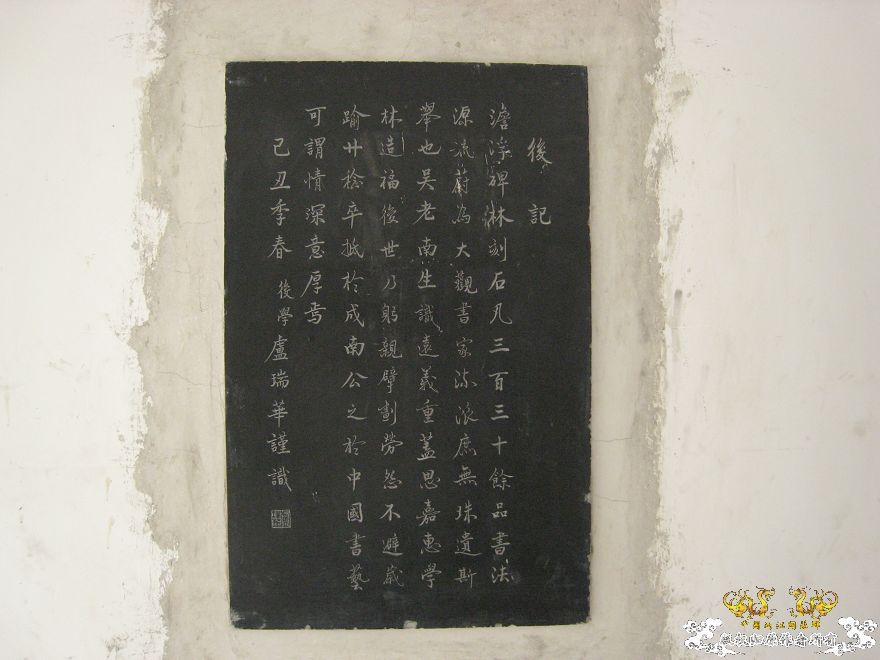 後記
澹浮碑林刻石凡三百三十餘品書法
源流蔚為大觀書家流派庶無珠遺斯
舉也吴老南生識遠義重蓋思嘉惠學
林造福後世乃躬親擘劃勞怨不避歲
踰廿稔卒抵於成南公之於中國書藝
可謂情深意厚焉
己丑季春 後學盧瑞華謹識